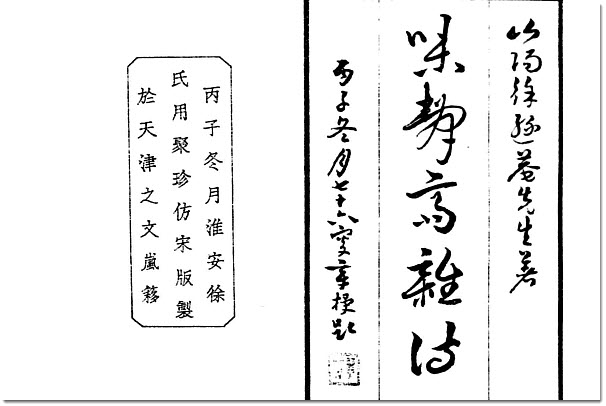 山陽徐遯菴先生著
味靜齋雜詩
丙子冬月七十六叟章梫題
丙子冬月淮安徐
氏用聚珍仿宋版製
於天津之文嵐簃